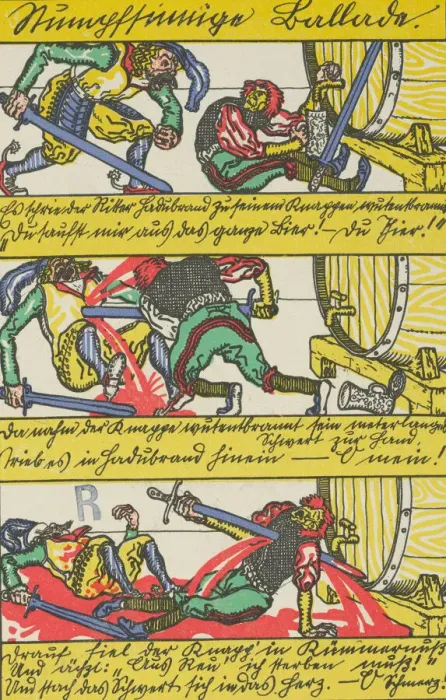 Stumpfsinnige Ballade.
Es schrie der Ritter Hadubrand zu seinem Knappen, wutentbrannt
„Du saufst mir aus das ganze Bier! – Du Tier!"
Da nahm der Knappe wutentbrannt sein meterlanges
Schwert zur Hand,
Trieb es in Hadubrand hinein — O mein!
R
Drauf fiel der Knapp in Kümmernuß
Und ächzt: „Aus Reu' ich sterben muß!"
Und stach das Schwert sich in das Herz. – O Schmerz